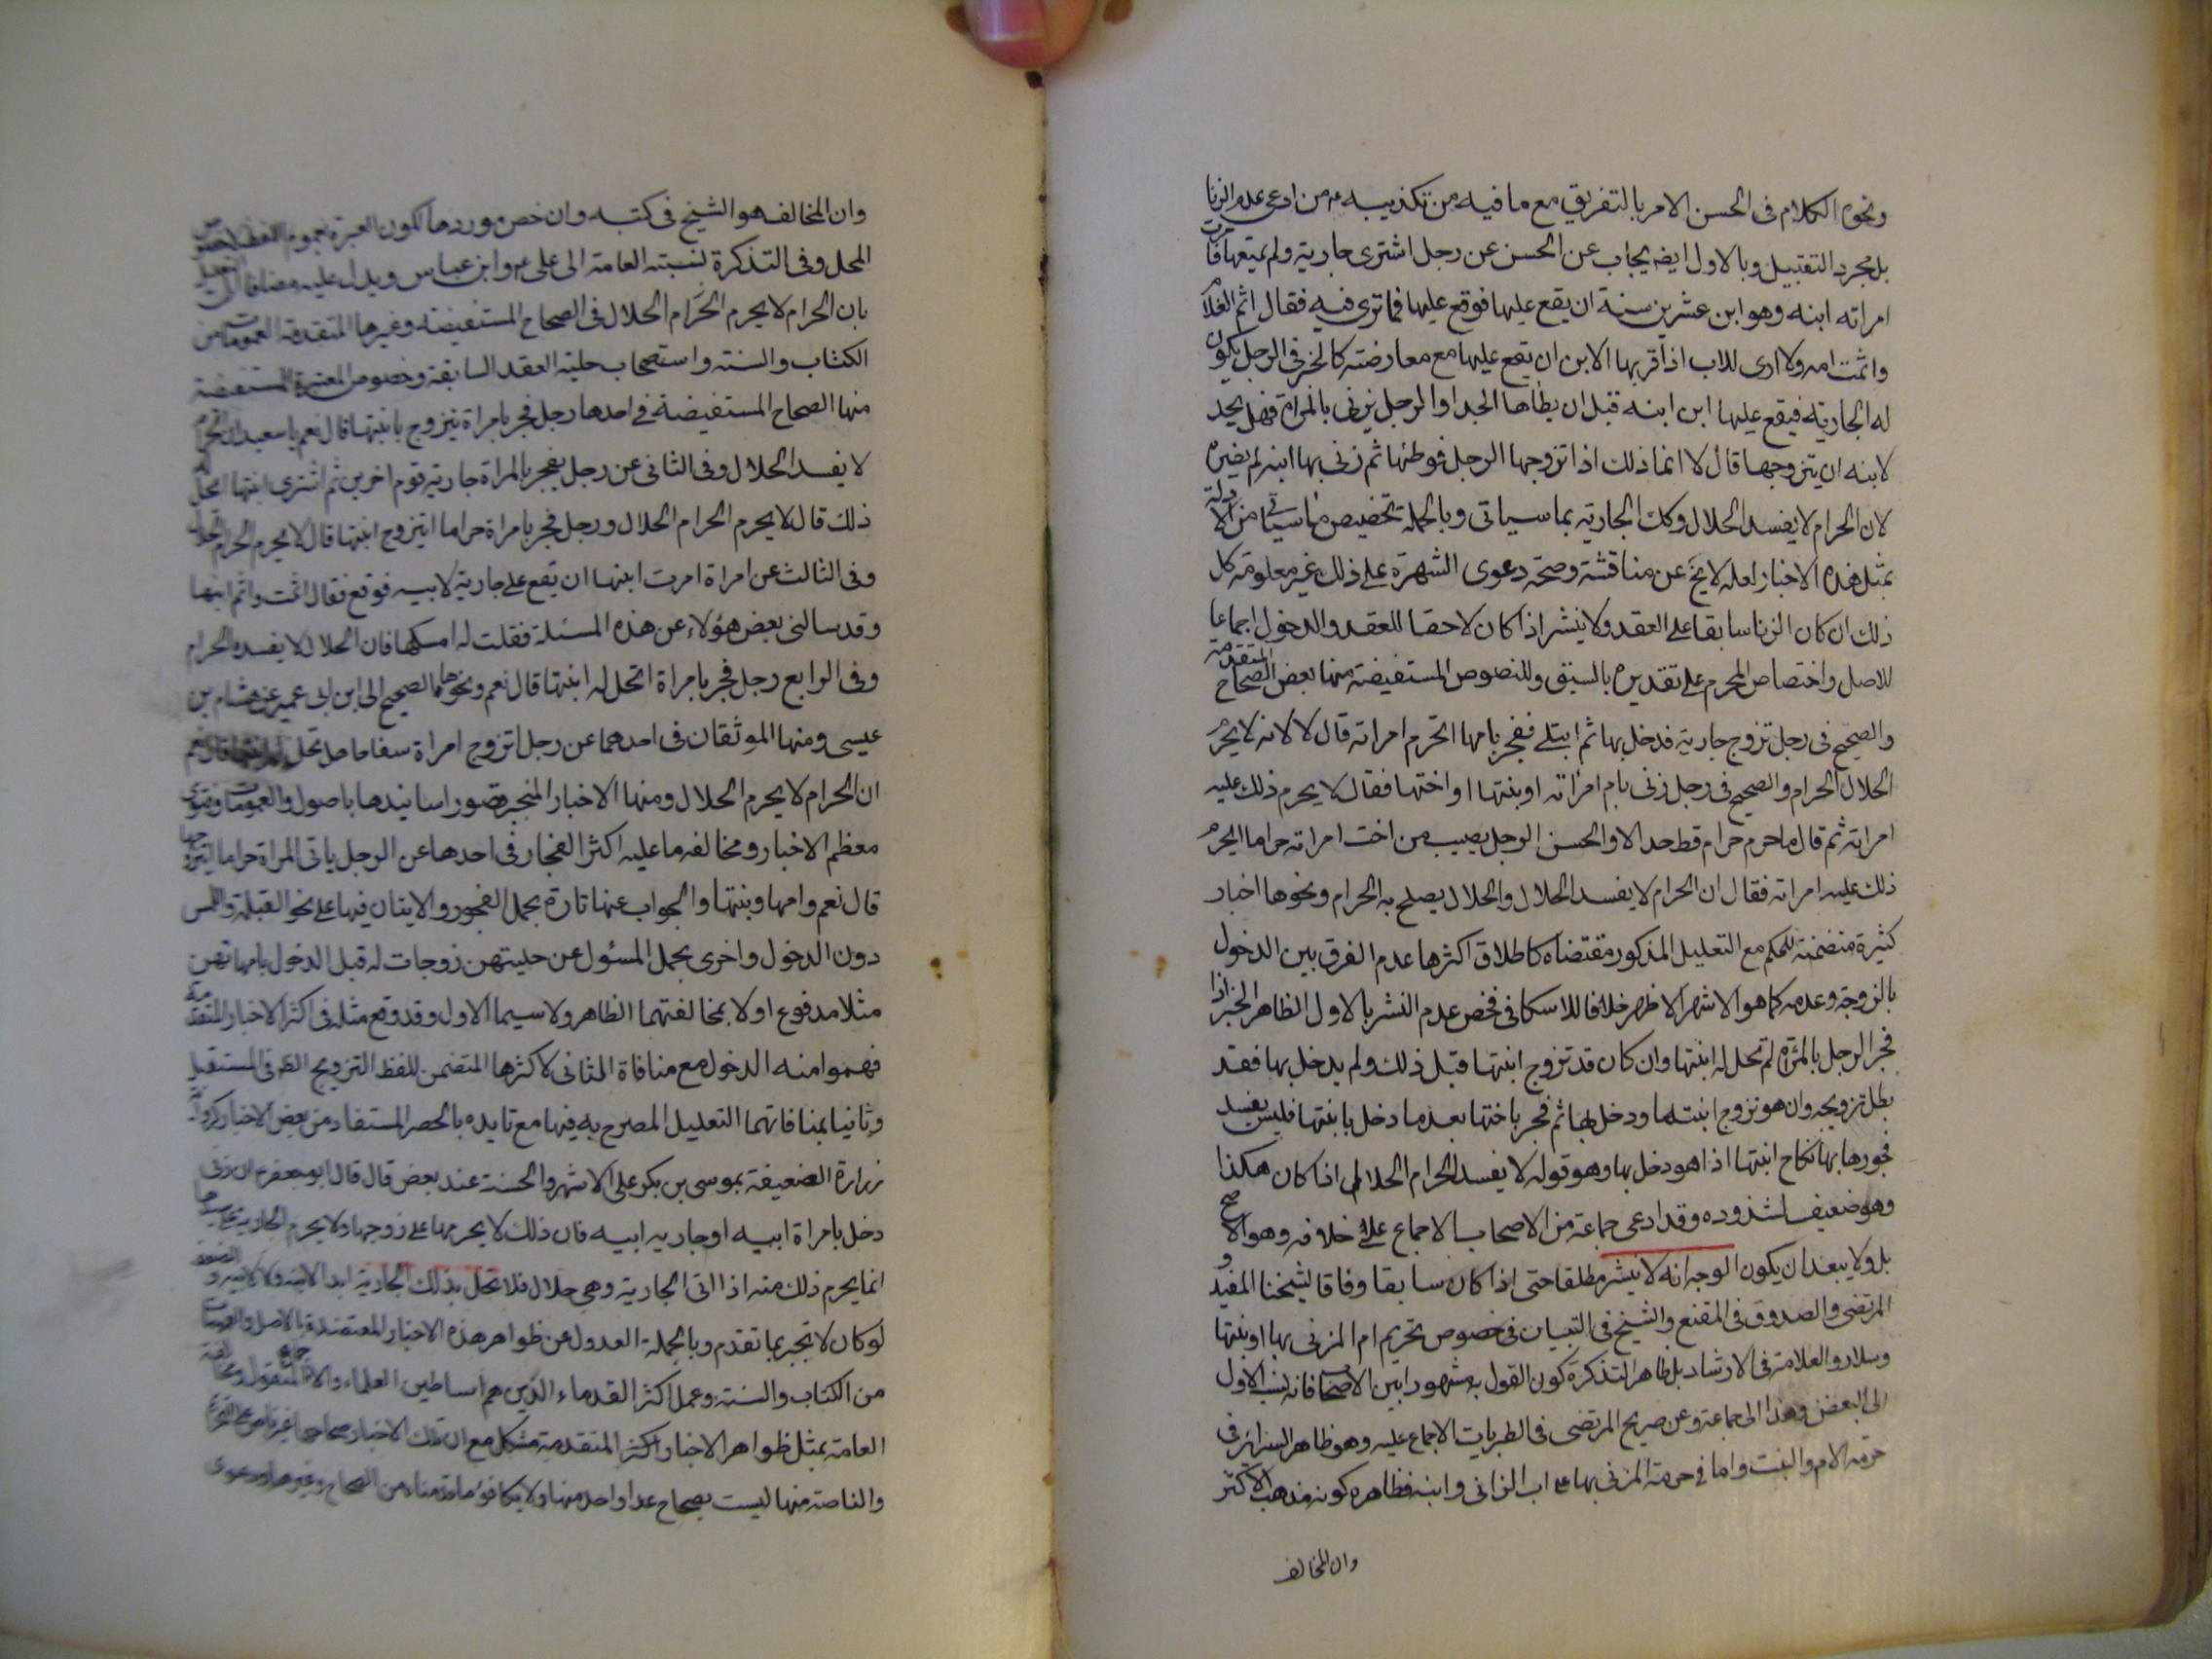 ونحوه الكلام فى الحسن الامر بالتفريق مع ما فيه من تكذيبه ع من ادعى عدم الزنا
بل مجرد التقبيل وبالاول ايضه يجاب عن الحسن عن رجل اشترى جارية ولم يمسها فامرت
امراته ابنه وهو ابن عشر سنة ان يقع عليها فوقع عليها فما ترى فيه فقال اثم الغلام
واثمت امه ولا ارى للاب اذا قربها الابن ان يقع عليها مع معارضته كالخبر فى الرجل يكون
له الجارية فيقع عليها ابن ابنه قبل ان يطاها الجد او الرجل يزنى بالمراة فهل يحل
لابنه ان يتزوجها قال لا انما ذلك اذا تزوجها الرجل فوطئها ثم زنى بها ابنه لم يضره
لان الحرام لا يفسد الحلال وكك الجارية بما سياتى وبالجملة تخصيص ما سياتى من الادلة
بمثل هذه الاخبار لعله لا يخ عن مناقشة وصحة دعوى الشهرة على ذلك غير معلومة كل
ذلك ان كان الزنا سابقا على العقد ولا ينشر اذا كان لاحقا للعقد والدخول اجماعا
للاصل واختصاص المحرم على تقديره بالسبق وللنصوص المستفيضة منها بعض الصحاح المتقدمة
والصحيح فى رجل تزوج جارية فدخل بها ثم ابتلى ففجر بامها اتحرم امراته قال لا لانه لا يحرم
الحلال الحرام والصحيح فى رجل زنى بام امراته او بنتها او اختها فقال لا يحرم ذلك عليه
امراته ثم قال ما حرم حرام قط حلالا والحسن الرجل يصيب من اخت امراته حراما ايحرم
ذلك عليه امراته فقال ان الحرام لا يفسد الحلال والحلال يصلح به الحرام ونحوها اخبار
كثيرة متضمنة للحكم مع التعليل المذكور مقتضاه كاطلاق اكثرها عدم الفرق بين الدخول
بالزوجة وعدمه كما هو الاشهر الاظهر خلافا للاسكافى فخص عدم النشر بالاول الظاهر الخبر اذا
فجر الرجل بالمراة لم تحل له ابنتها وان كان قد تزوج ابنتها قبل ذلك ولم يدخل بها فقد
بطل تزويجه وان هو تزوج ابنتها ودخل بها ثم فجر باختها بعد ما دخل بابنتها فليس يفسد
فجوره بها نكاح ابنتها اذا هو دخل بها وهو قوله لا يفسد الحرام الحلال اذا كان هكذا
وهو ضعيف لشذوذه وقد ادعى جماعة من الاصحاب الاجماع على خلافه وهو الاصح
بل ولا يبعد ان يكون الوجه انه لا ينشر مطلقا حتى اذا كان سابقا وفاقا لشيخنا المفيد و
المرتضى والصدوق فى المقنع والشيخ فى التبيان فى خصوص تحريم ام المزنى بها او بنتها
وسلار والعلامة فى الارشاد بل ظاهر التذكرة كون القول به مشهورا بين الاصحاب فانه نسب الاول
الى البعض وهذا الى جماعة وعن صريح المرتضى فى الطبريات الاجماع عليه وهو ظاهر السرائر فى
حرمة الام والبنت واما فى حرمة المزنى بها على اب الزانى وابنه فظاهره كونه مذهب الاكثر
وان المخالف
وان المخالف هو الشيخ فى كتبه وان خص موردها لكون العبرة بعموم اللفظ لا خصوص
المحل وفى التذكرة نسبته العامة الى على ع وابن عباس ويدل عليه مضافا الى التعليل
بان الحرام لا يحرم الحرام الحلال فى الصحاح المستفيضة وغيرها المتقدمة العمومات من
الكتاب والسنة واستصحاب حلية العقد السابقة وخصوص المعتبرة المستفيضة
منها الصحاح المستفيضة فى احدها رجل فجر بامراة يتزوج بابنتها قال نعم يا سعيد ان الحرام
لا يفسد الحلال وفى الثانى عن رجل يفجر بالمراة جارية قوم اخرين ثم اشترى ابنتها ايحل له
ذلك قال لا يحرم الحرام الحلال ورجل فجر بامراة حراما ايتزوج ابنتها قال لا يحرم الحرام الحلال
وفى الثالث عن امراة امرت ابنها ان يقع على جارية لابيه فوقع فقال اثمت واثم ابنها
وقد سالنى بعض هؤلاء عن هذه المسئلة فقلت له امسكها فان الحلال لا يفسده الحرام
وفى الرابع رجل فجر بامراة اتحل له ابنتها قال نعم ونحوها الصحيح الى ابن ابى عمير عن هشام بن
عيسى ومنها الموثقان فى احدهما عن رجل تزوج امراة سفاحا هل تحل له ابنتها قال نعم
ان الحرام لا يحرم الحلال ومنها الاخبار المنجبر قصور اسانيدها باصول والعمومات وفتوى
معظم الاخبار ومخالفه ما عليه اكثر الفجار فى احدها عن الرجل ياتى المراة حراما ايتزوجها
قال نعم وامها وبنتها والجواب عنها تارة بحمل الفجور والاتيان فيها على نحو القبلة واللمس
دون الدخول واخرى بحمل المسئول عن حليتهن زوجات له قبل الدخول بامهاتهن
مثلا مدفوع اولا بمخالفتهما الظاهر ولا سيما الاول وقد وقع مثله فى اكثر الاخبار المتقدمة
ففهموا منه الدخول مع منافاة الثانى لاكثرها المتضمن للفظ التزويج الظ فى المستقبل
وثانيا بمنافاتهما التعليل المصرح به فيها مع تايده بالحصر المستفاد من بعض الاخبار كرواية
زرارة الضعيفة بموسى بن بكر على الاشهر والحسنة عند بعض قال قال ابو جعفر ع ان زنى
دخل بامراة ابيه او جارية ابيه فان ذلك لا يحرمها على زوجها ولا يحرم الجارية على سيدها
انما يحرم ذلك منه اذا اتى الجارية وهى حلال فلا تحل بذلك الجارية ابدا لابنه ولا لابيه و
لو كان لا تجبر بما تقدم وبالجملة العدول عن ظواهر هذه الاخبار المعتضدة بالاصل والعمومات
من الكتاب والسنة وعمل اكثر القدماء الذين هم اساطين العلماء والاجماع المنقول ومخالفة
العامة بمثل ظواهر الاخبار اكثر المتقدمة مشكل مع ان تلك الاخبار صحاحها غير ناص على التحريم
والناصة منها ليست بصحاح عدا واحد منها ولا يكافؤ ما قدمناه من الصحاح وغيرها ودعوى